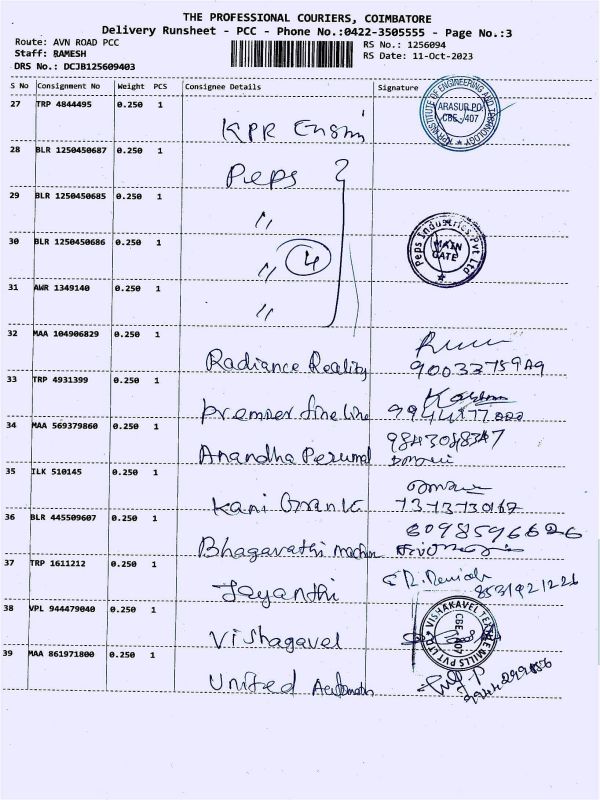 THE PROFESSIONAL COURIERS, COIMBATORE
Delivery Runsheet - PCC - Phone No.:0422-3505555 - Page No.:3
Route: AVN ROAD PCC
Staff: RAMESH
DRS No.: DCJB125609403
RS No.: 1256094
RS Date: 11-Oct-2023
S No Consignment No Weight PCS Consignee Details Signature
27 TRP 4844495 0.250 1
KPR Engni
KPR INSTITUTE OF ENGINEERING AND TECHNOLOGY
ARASUR PO
CBE - 407
28 BLR 1250450687 0.250 1
Peps
29 BLR 1250450685 0.250 1
"
30 BLR 1250450686 0.250 1
" 4
Peps Industries Pvt Ltd
MAIN
GATE
31 AWR 1349140 0.250 1
"
32 MAA 104906829 0.250 1
Radiance Reality
33 TRP 4931399 0.250 1
Premier fine line
34 MAA 569379860 0.250 1
Anandha Perumal 9843048347
35 ILK 510145 0.250 1
Kani
36 BLR 445509607 0.250 1
8098596626
Bhagavathi
37 TRP 1611212 0.250 1
Jayanthi 8531921226
38 VPL 944479040 0.250 1
Vishagavel
VISHAKAVEL TEXTILE MILLS PVT LTD
CBE
407
39 MAA 861971800 0.250 1
United